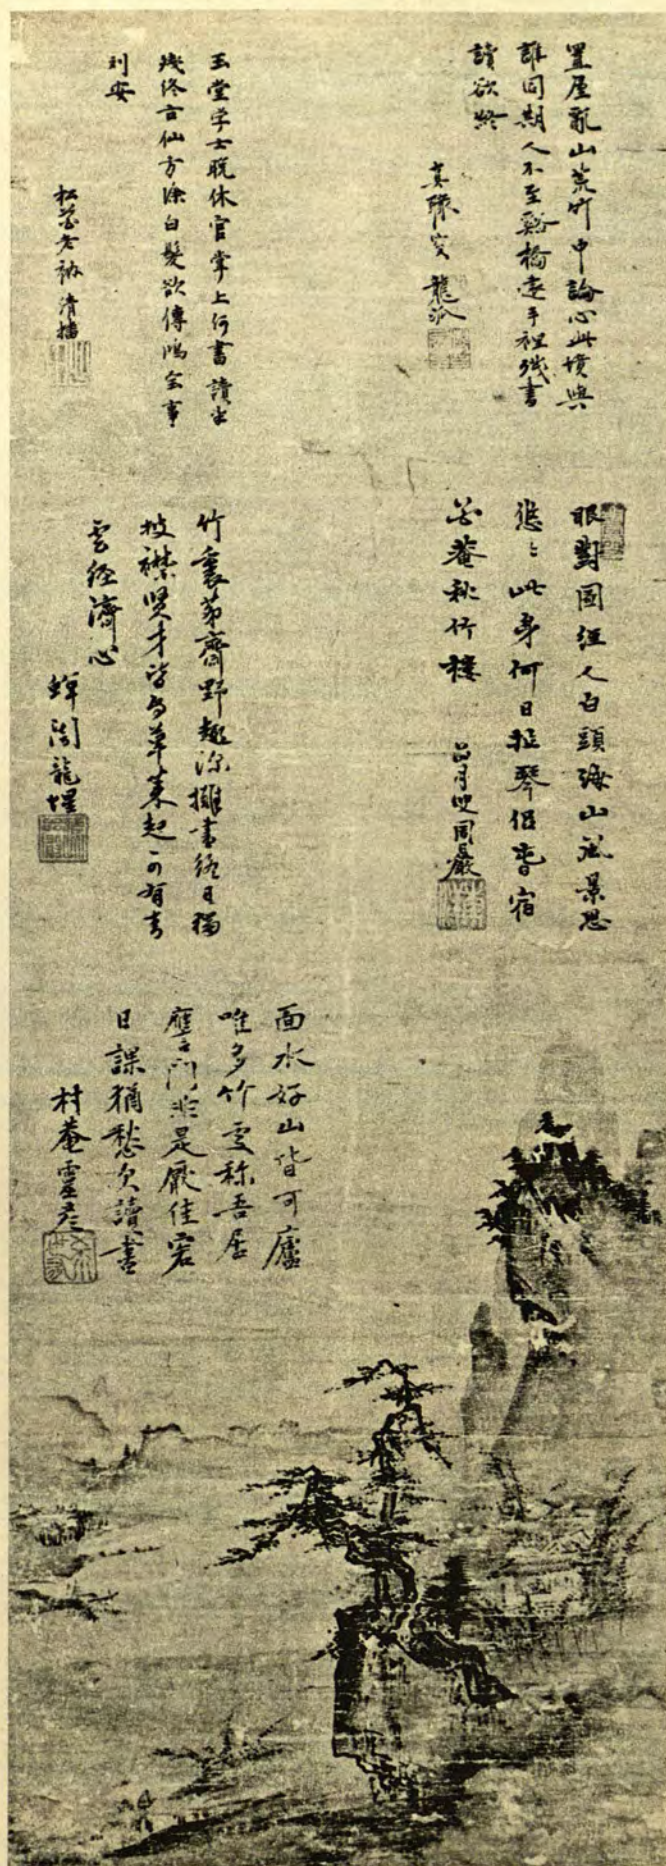 置屋亂山荒竹中論心此境與
誰同期人不至谿橋遠手裡殘書
讀欲終
龍派
玉堂学士晩休官掌上何書讀未
殘終古仙方染白髮欲傳鴻宝事
刘安
松花老衲清播
眼對圖経人白頭海山風景思
悠々此身何日抱琴侶 宿
菴秋竹樓
周嚴
竹裏茅齋野趣深擁書終日獨
披襟賢才皆自草莱起可有青
雲経濟心
蟬闇龍惺
面水好山皆可廬
唯多竹處称吾居
門非是厭佳客
日課猶愁欠讀書
村菴靈彦